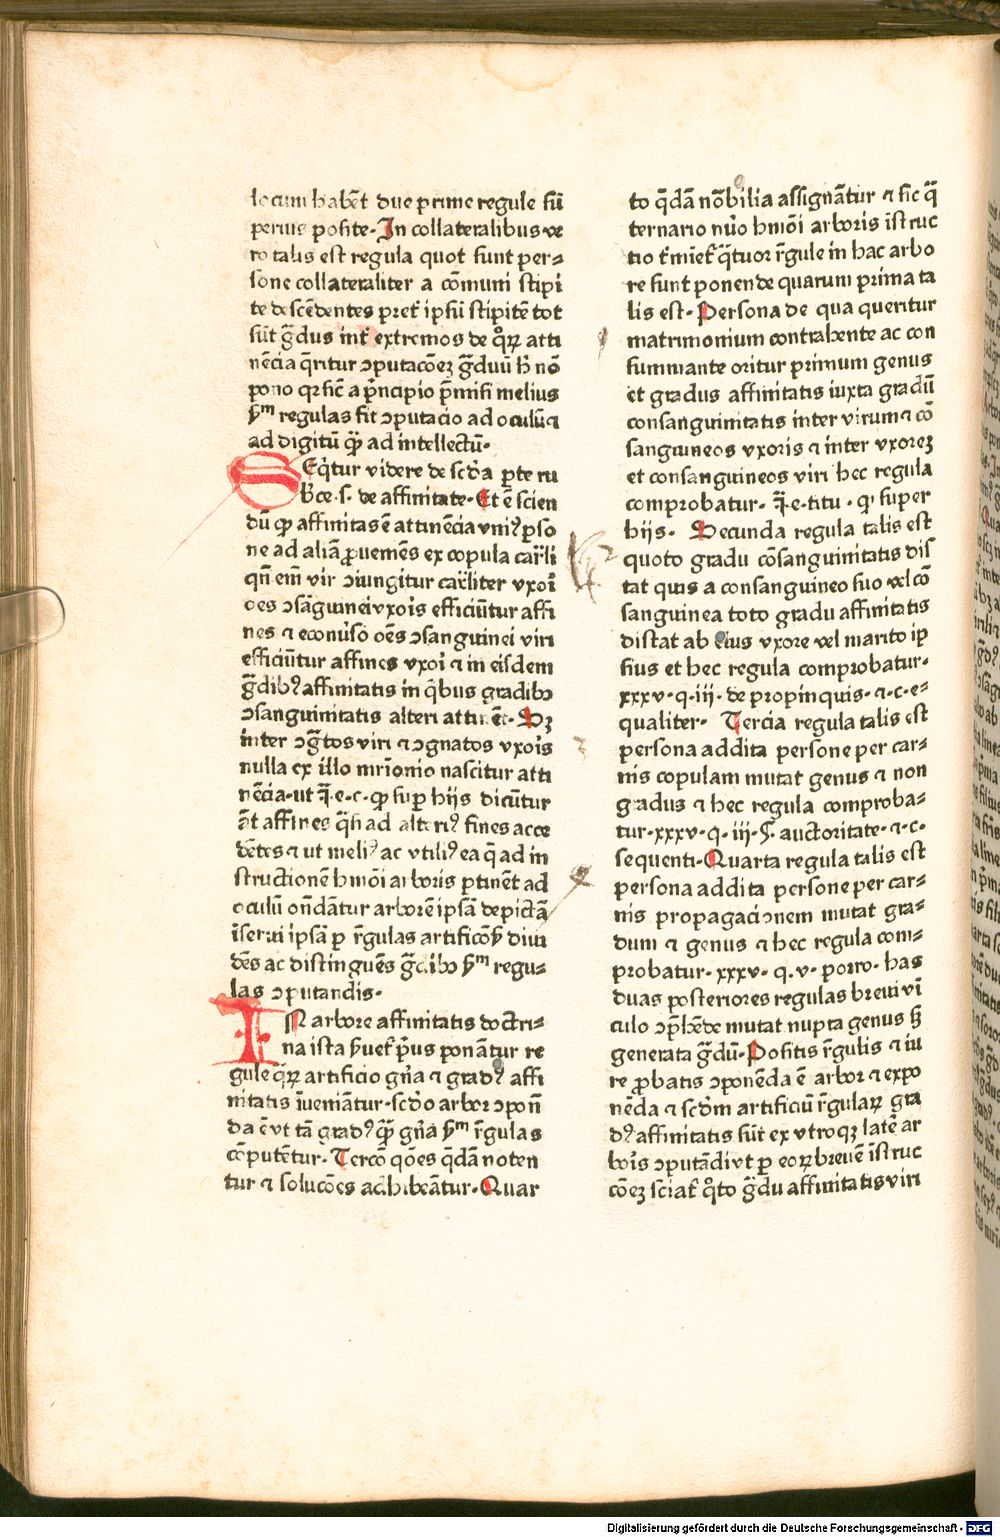 locum habēt due prime regule sui
perius posite. In collateralibus ve
ro talis est regula quot sunt per⸗
sone collateraliter a cōmuni stipi
te descēdentes pret̄ ipsū stipitē tot
sūt g̃dus int̄ extremos de qͦꝝ atti
nēcia q̄ritur ꝯputacōeꝫ g̃duū h̄ nō
pono qꝛ sic̄ a p̃ncipio p̄misi melius
ẜm regulas fit ꝯputacio ad oculū ⁊
ad digitū qͣ̄ ad intellectū.
SEq̄tur videre de scd̄a ꝑte ru
bͥce .s. de affinitate. Et ē scien
dū ꝙ affinitas ē attinēcia vniꝰ ꝑso
ne ad aliā ꝓueniēs ex copula car̄li
qn̄ em̄ vir ꝯiungitur car̄liter vxoī
oēs ꝯsāguinei vxoīs efficiūtur affi
nes ⁊ econuͥso oēs ꝯsanguinei viri
efficiūtur affines vxoī ⁊ in eisdem
g̃dibꝰ affinitatis in qͥbus gradibꝫ
ꝯsanguinitatis alteri attinēt. Sꝫ
inter ꝯg̃tos viri ⁊ ꝯgnatos vxoīs
nulla ex illo mr̄ionio nascitur atti
nēcia. ut ꝗ̄. e. c. ꝙ suꝑ hijs dicūtur
āt affines q̄si ad alteriꝰ fines acce
dētes ⁊ ut meliꝰ ac vtiliꝰ ea q̄ ad in
structionē hmōi arboris ꝑtinēt ad
oculū on̄dātur arborē ipsā depictā
īserui ipsā ꝑ r̄gulas artificōẜ diui
dēs ac distinguēs g̃dibꝫ ẜm regu⸗
las ꝯputandis.
IN arbore affinitatis doctri⸗
na ista ẜuet̄ p̃us ponātur re
gule q̄ꝝ artificio gn̄a ⁊ gradꝰ affi
nitatis īueniātur. scd̄o arbor ꝯpon̄
da ē vt tā gradꝰ qͣ̄ gn̄a ẜm r̄gulas
cōputētur. Tercō qōes q̄dā noten
tur ⁊ solucōes adhibeātur. Quar
to q̄dā nōbilia assignātur ⁊ sic q̄
ternario nūo hmōi arboris īstruc
tio t̄miet̄ q̄tuor r̄gule in hac arbo
re sunt ponende quarum prima ta
lis est. Persona de qua queritur
matrimonium contrahente ac con
summante oritur primum genus
et gradus affinitatis iuxta gradū
consanguinitatis inter virum ⁊ cō
sanguineos vxoris ⁊ inter vxoreꝫ
et consanguineos viri hec regula
comprobatur. ꝗ̄. e. titu. qͥ super
hijs. Secunda regula talis est
quoto gradu cōsanguinitatis dis
tat quis a consanguineo suo vel cō
sanguinea toto gradu affinitatis
distat ab eius vxore vel marito ip
sius et hec regula comprobatur.
xxxv. q. iii. de propinquis. ⁊. c. e⸗
qualiter. Tercia regula talis est
persona addita persone per car⸗
nis copulam mutat genus ⁊ non
gradus ⁊ hec regula comproba⸗
tur. xxxv. q. iii. §. auctoritate. ⁊. c.
sequenti. Quarta regula talis est
persona addita persone per car⸗
nis propagacionem mutat gra⸗
dum ⁊ genus ⁊ hec regula com⸗
probatur. xxxv. q. v. porro. has
duas posteriores regulas breui vī
culo ꝯp̄hēde mutat nupta genus sꝫ
generata g̃dū. Positis r̄gulis ⁊ iu
re ꝓbatis ꝯponēda ē arbor ⁊ expo
nēda ⁊ scd̄m artificiū r̄gulaꝝ gra
dꝰ affinitatis siūt ex vtroqꝫ latē ar
boīs ꝯputādi vt ꝑ eoꝝ breuē īstruc
cōeꝫ sciat̄ qͦto g̃du affinitatis viri
Digitalisierung gefördert durch die Deutsche Forschungsgemeinschaft - DFG